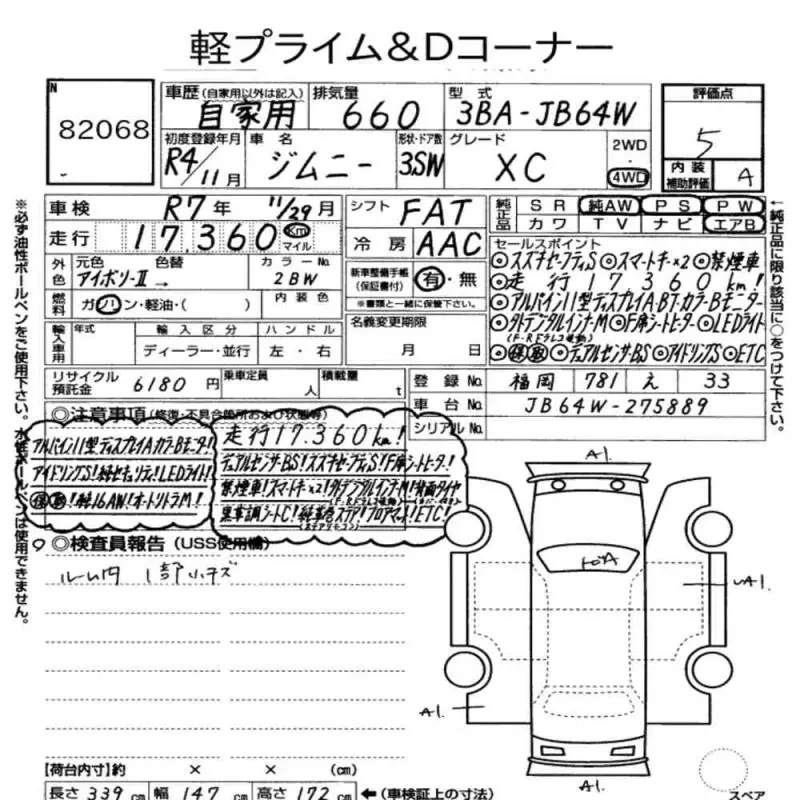 軽プライム&Dコーナー
N
82068
車歴(自家用以外は記入)
自家用
排気量
660
型式
3BA-JB64W
評価点
5
初度登録年月
R4/11月
車名
ジムニー
形状・ドア数
3SW
グレード
XC
2WD
4WD
内装
補助評価
A
車検
R7年 11/29月
走行
17,360
Km
マイル
シフト
FAT
冷房
AAC
純正品
SR 純AW PS PW
カワ TV ナビ エアB
セールスポイント
◎スズキセーフティS◎スマートキー×2◎禁煙車
◎走行17,360km!
◎アルパイン11型ディスプレイA・BT・カラーBモニター
◎外デジタルインナーM◎F席シートヒーター◎LEDライト
(F・Rドラレコ連動)
◎保取◎デュアルセンサーBS◎アイドリングS◎ETC
外色
元色
アイボリーII→
色替
カラーNo
2BW
燃料
ガソリン・軽油・( )
内装色
新車整備手帳
(保証書付)
有・無
※書類と一緒に保管下さい。
輸入車用
年式
輸入区分
ディーラー・並行
ハンドル
左・右
名義変更期限
月 日
リサイクル
預託金
6180円
乗車定員
人
積載量
t
登録No.
福岡 781 え 33
車台No.
JB64W-275889
シリアルNo.
◎注意事項(修復・不具合箇所および状態等)
アルパイン11型ディスプレイAカラーBモニター!
アイドリングS!純セキュリティ!LEDライト!
保取!純16AW!オートリトラM!
走行17,360km!
デュアルセンサーBS!スズキセーフティS!F席シートヒーター!
禁煙車!スマートキー×2!外デジタルインナーM!背面タイヤ
(F・Rドラレコ連動)
黒車調シートC!純革巻ステア!フロアマット!ETC!
(ステアリモコン)
◎検査員報告(USS使用欄)
ルーム内 1部小キズ
A1.
A1.
A1.
A1.
【荷台内寸】約 × × (cm)
長さ 339cm 幅 147cm 高さ 172cm ←(車検証上の寸法)
スペア
※必ず油性ボールペンをご使用下さい。水性ボールペンは使用できません。
←純正品に限り該当に○をつけて下さい。